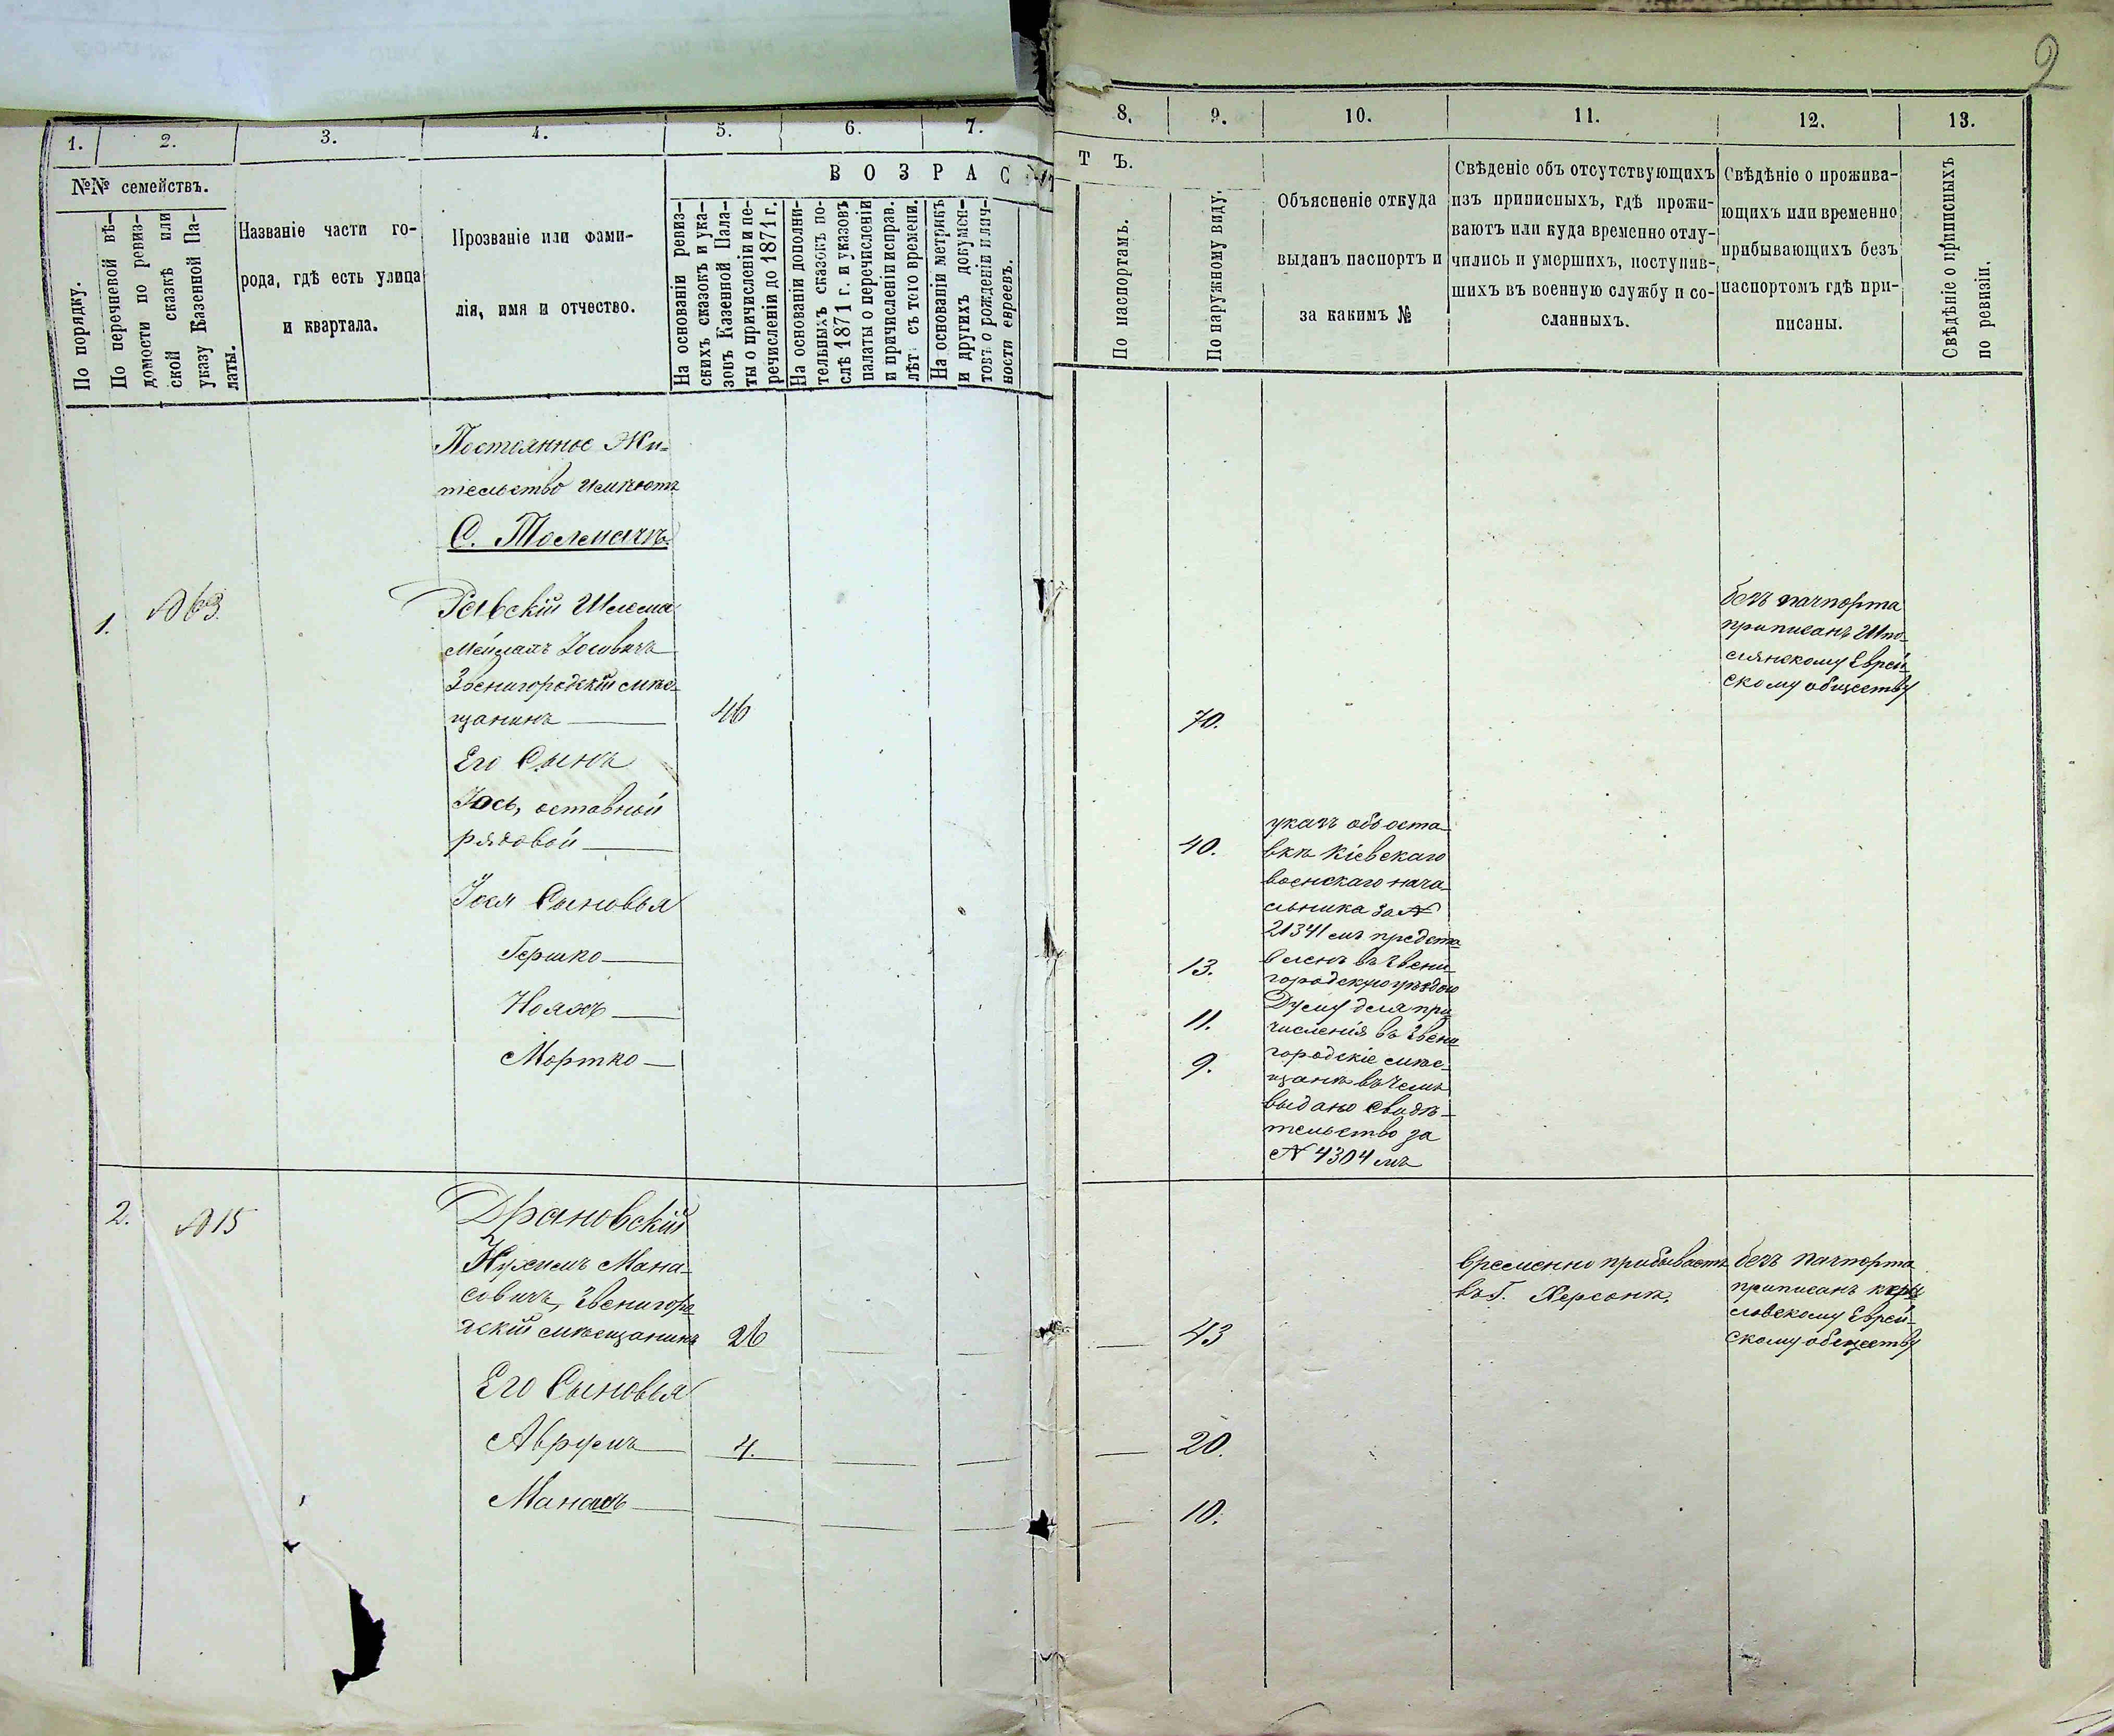 2
1.
2.
3.
4.
5.
6.
7.
8.
9.
10.
11.
12.
13.
№№ семействъ.
По порядку.
По перечневой вѣ-
домости по ревиз-
ской сказкѣ или
указу Казенной Па-
латы.
Названіе части го-
рода, гдѣ есть улица
и квартала.
Прозваніе или фами-
лія, имя и отчество.
В О З Р А С
Т Ъ.
На основаніи ревиз-
скихъ сказокъ и ука-
зовъ Казенной Пала-
ты о причисленіи и пе-
речисленіи до 1871 г.
На основаніи дополни-
тельныхъ сказокъ по-
слѣ 1871 г. и указовъ
палаты о перечисленіи
и причисленіи исправ.
лѣтъ съ того времени.
На основаніи метрикъ
и другихъ докумен-
товъ о рожденіи и лич-
ности евреевъ.
По паспортамъ.
По наружному виду.
Объясненіе откуда
выданъ паспортъ и
за какимъ №
Свѣденіе объ отсутствующихъ
изъ приписныхъ, гдѣ прожи-
ваютъ или куда временно отлу-
чились и умершихъ, поступив-
шихъ въ военную службу и со-
сланныхъ.
Свѣдѣніе о прожива-
ющихъ или временно
прибывающихъ безъ
паспортомъ гдѣ при-
писаны.
Свѣдѣніе о приписныхъ
по ревизіи.
Постоянное Жи-
тельство имѣютъ
С. Толмачъ
1.
№ 63.
Шлема
Іосовичъ
Звенигородскій мѣ-
щанинъ
46
70.
безъ пачпорта
приписанъ Шпо-
лянскому Еврей-
скому обществу
Его Сынъ
Іось, оставной
рядовой
40.
указъ объ оста-
вкѣ Кіевскаго
воинскаго нача-
льника за №
21341 мъ предста
вленъ въ Звени
городскую
Думу для при
численія въ Звени
городскіе мѣ-
щане въ чемъ
выдано свидѣ-
тельство за
№ 4304 мъ
Іося Сыновья
Гершко
13.
Ноахъ
11.
Мортко
9.
2.
№ 15
Драновскій
Нухимъ Мана-
совичъ, Звенигоро
дскій мѣщанинъ
26
43
временно прибываетъ
въ г. Херсонѣ.
безъ пачпорта
приписанъ
ловскому Еврей-
скому обществу
Его Сыновья
Аврумъ
4.
20.
10.